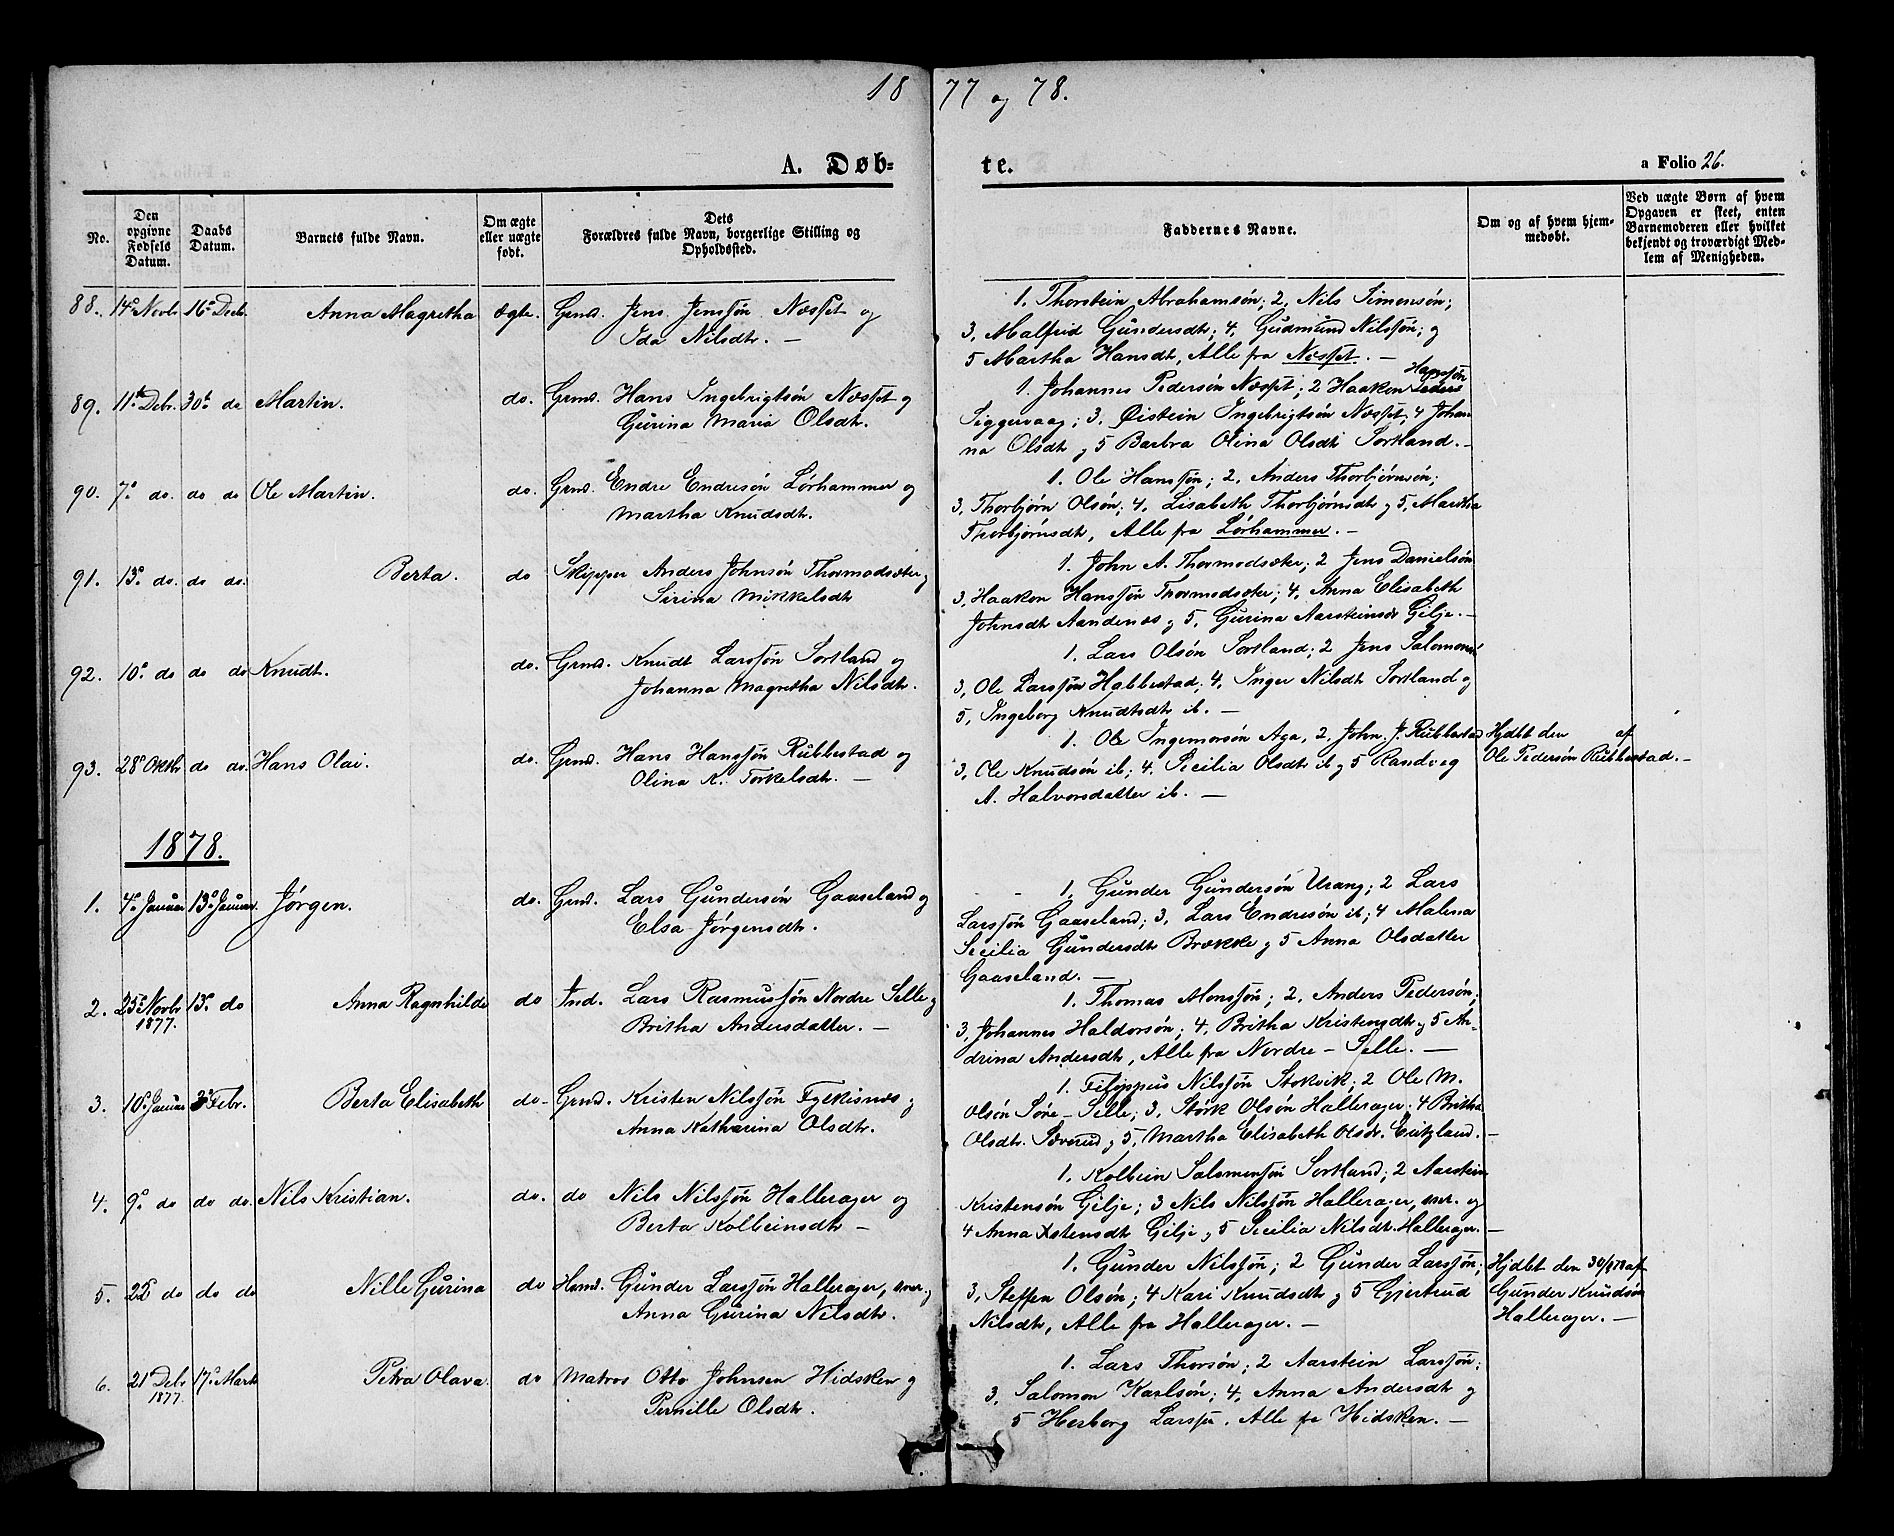 1877 og 78.
A. Døbte.
a Folio 26.
No.
Den opgivne Fødsels Datum.
Daabs Datum.
Barnets fulde Navn.
Om ægte eller uægte født.
Dets Forældres fulde Navn, borgerlige Stilling og Opholdssted.
Faddernes Navne.
Om og af hvem hjemmedøbt.
Ved uægte Børn af hvem Opgaven er skeet, enten Barnemoderen eller hvilket bekjendt og troværdigt Medlem af Menigheden.
88. 14de Novb. 16de Decb. Anna Magretha ægte. Grmd. Jens Jenssøn Næsset og
Ida Nilsdtr. —
1. Thorstein Abrahamsøn; 2, Nils Simonsøn;
3, Malfrid Gundersdtr; 4, Gudmund Nilssøn; og
5 Martha Hansdt, Alle fra Næsset. —
89. 11te Debr. 30te do Martin. do. Grmd. Hans Ingebrigtsøn Næsset og
Gurina Maria Olsdtr.
1. Johannes Pedersøn Næsset; 2 Haakon Hanssøn
Siggervaag; 3. Øistein Ingebrigtsøn Næsset, 4 Johan
na Olsdt og 5 Barbra Olina Olsdt Sortland. —
90. 7de do. do do Ole Martin. do. Grmd. Endre Endresøn Lørhammer og
Martha Knudsdt.
1. Ole Hanssøn; 2, Anders Thorbjørnsøn;
3, Thorbjørn Olsøn; 4, Lisabeth Thorbjørnsdt og 5, Martha
Thorbjørnsdt, Alle fra Lørhammer. —
91. 13de do. do do. Berta. do Skipper Anders Johnsøn Thormodsæter og
Sirina Mikkelsdt
1. John A. Thormodsæter; 2 Jens Danielsøn
3, Haakon Hanssøn Thormodsæter; 4, Anna Elisabeth
Johnsdt Aandenes og 5, Gurina Aarsteinsdr Gilje. —
92. 10de do do do Knudt. do. Grmd. Knudt Larssøn Sortland og
Johanna Magretha Nilsdt.
1. Lars Olsøn Sortland; 2 Jens Salomons
3, Ole Larssøn Habbestad; 4, Inger Nilsdt Sortland og
5, Ingeborg Knudtsdt ib. —
93. 28de Oktbr do do. Hans Olai. do. Grmd. Hans Hanssøn Rubbestad og
Olina K. Torkelsdt. —
1. Ole Ingemorsøn Aga, 2, John J. Rubbestad
3, Ole Knudsøn ib; 4. Secilia Olsdt ib og 5 Randveg
A. Halvorsdatter ib. —
Hjdbt den af
Ole Pedersøn Rubbestad. —
1878.
1. 4de Januar 13de Januar. Jørgen. do. Grmd. Lars Gundersøn Gaaseland og
Elsa Jørgensdt.
1, Gunder Gundersøn Urang; 2 Lars
Larssøn Gaaseland; 3, Lars Endresøn ib; 4 Malena
Secilia Gundersdt Brække og 5 Anna Olsdatter
Gaaseland. —
2. 25de Novbr 1877. 13de do Anna Ragnhilde do Ind. Lars Rasmussøn Nordre Selle og
Britha Andersdatter. —
1. Thomas Monssøn; 2, Anders Pedersøn;
3, Johannes Haldorsøn; 4, Britha Kristensdt og 5 An-
drina Andersdt, Alle fra Nordre-Selle. —
3. 10de Januar 3de Febr. Berta Elisabeth do- Grmd. Kristen Nilssøn Fylkisnes og
Anna Katharina Olsdtr.
1. Filippus Nilssøn Stokvik; 2 Ole M.
Olsøn Søre-Selle; 3, Størk Olsøn Hallerager; 4 Britha
Olsdtr. Sæverud og 5, Martha Elisabeth Olsdr.
4. 9de do do do. Nils Kristian. do. do Nils Nilssøn Hallerager og
Berta Kolbeinsdt —
1. Kolbein Salomonssøn Sortland; 2 Aarstein
Kristensøn Gilje; 3 Nils Nilssøn Hallerager, og
4 Anna Gilje og 5 Secilia Nilsdt. Hallerager. —
5. 22de do do do Nille Gurina do Husmd. Gunder Larssøn Hallerager, og
Anna Gurina Nilsdt.
1. Gunder Nilssøn; 2 Gunder Larssøn;
3, Steffen Olsøn; 4 Kari Knudsdt og 5 Gjertrud
Nilsdt, Alle fra Hallerager. —
Hjdbt den 30/1 78 af
Gunder Knudsøn
Hallerager. —
6. 21de Debr 1877. 17de Marts Petra Olava. do Matros Otto Johnsen Hidsken og
Pernille Olsdtr.
1. Lars Thorsøn; 2 Aarstein Larssøn;
3, Salomon Karlsøn; 4, Anna Andersdt og
5 Herborg Alle fra Hidsken. —